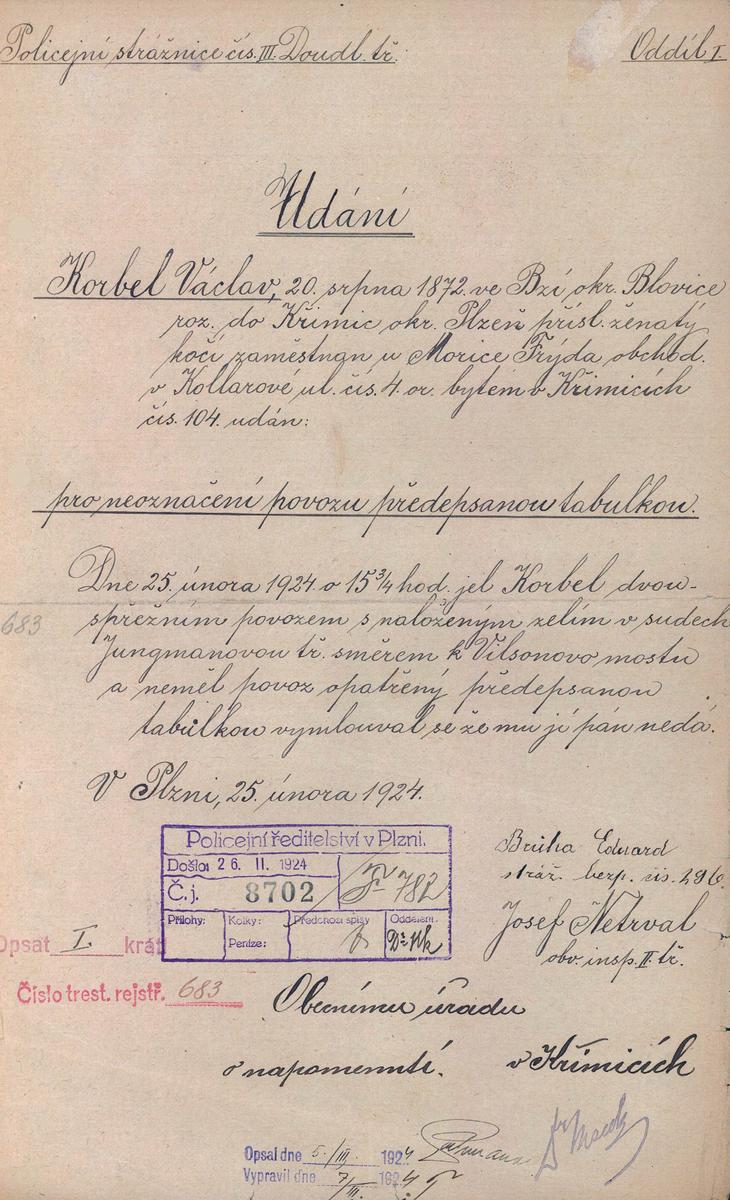 Policejní strážnice čís. III. Doudl. tř.
Oddíl I
Udání
Korbel Václav, 20. srpna 1872. ve Bzí okr. Blovice
roz. do Křimic okr. Plzeň přísl. ženatý
kočí zaměstnán u Morice Frýda obchod.
v Kollarové ul. čís. 4. or. bytem v Křimicích
čís. 104. udán:
pro neoznačení povozu předepsanou tabulkou.
Dne 25. února 1924. o 15 3/4 hod. jel Korbel dvou-
spřežním povozem s naloženým zelím v sudech
683
Jungmanovou tř. směrem k Vilsonovo mostu
a neměl povoz opatřený předepsanou
tabulkou vymlouval se že mu jí pán nedá.
V Plzni, 25. února 1924.
Policejní ředitelství v Plzni.
Došlo: 26. II. 1924
Č. j. 8702
F 782
Přílohy:
Kolky:
Peníze:
Předchozí spisy
Odděleni:
Brůha Eduard
stráž. bezp. čís. 296.
Josef Netrval
obv. insp. II. tř.
Opsat I. krát
Číslo trest. rejstř. 683
Obecnímu úřadu
v Křimicích
o napomenutí.
Opsal dne 5./III. 1924
Vypravil dne 7/III. 1924